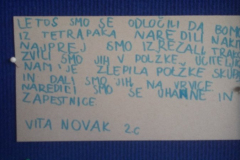 LETOS SMO SE ODLOČILI DA BOMO
IZ TETRAPAKA NAREDILI NAKIT
NAJPREJ SMO IZREZALI TRAK
ZVILI SMO JIH V POLŽKE, UČITELJICA
NAM JE ZLEPILA POLŽKE SKUPAJ
IN DALI SMO JIH NA VRVICE
NAREDILI SMO SE UHANE IN
ZAPESTNICE
VITA NOVAK 2.C